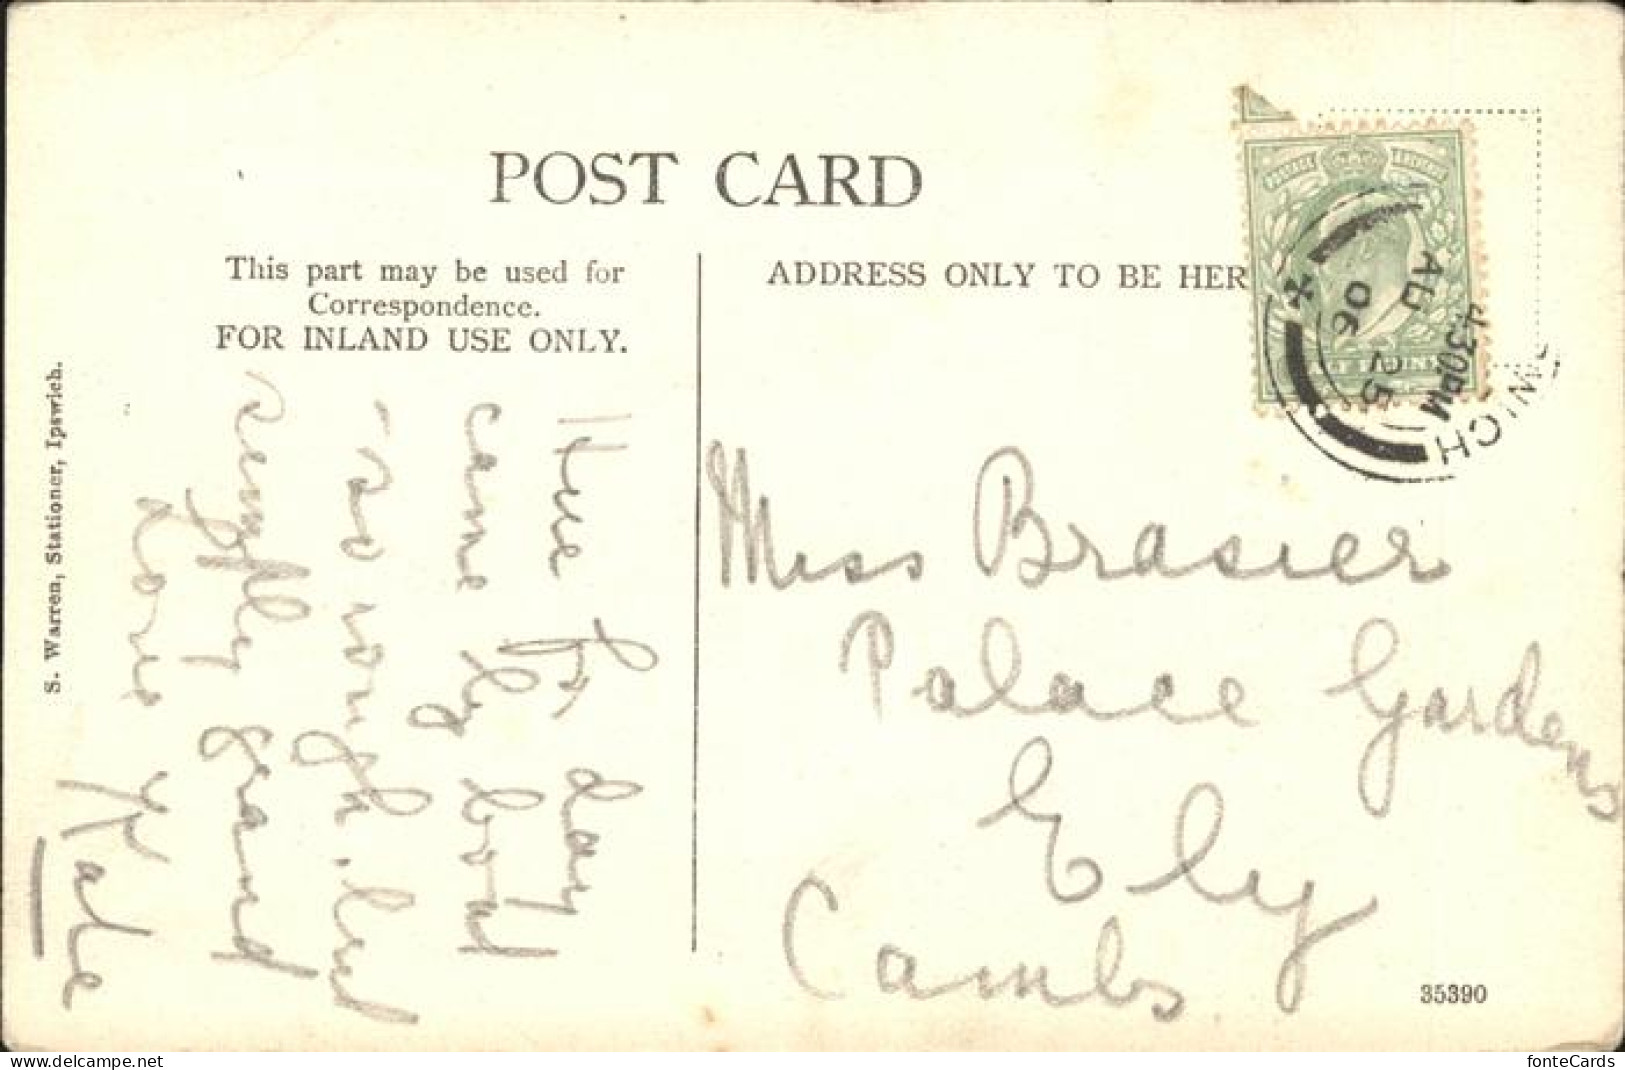 POST CARD
This part may be used for
Correspondence.
FOR INLAND USE ONLY.
ADDRESS ONLY TO BE HER
4.30PM
AU 25
06
WICH
Here for day
came by boat
so rough, but
simply grand
Love
Kate
Miss Brasier
Palace Gardens
Ely
Cambs
S. Warren, Stationer, Ipswich.
35390
delcampe.net
fonteCards